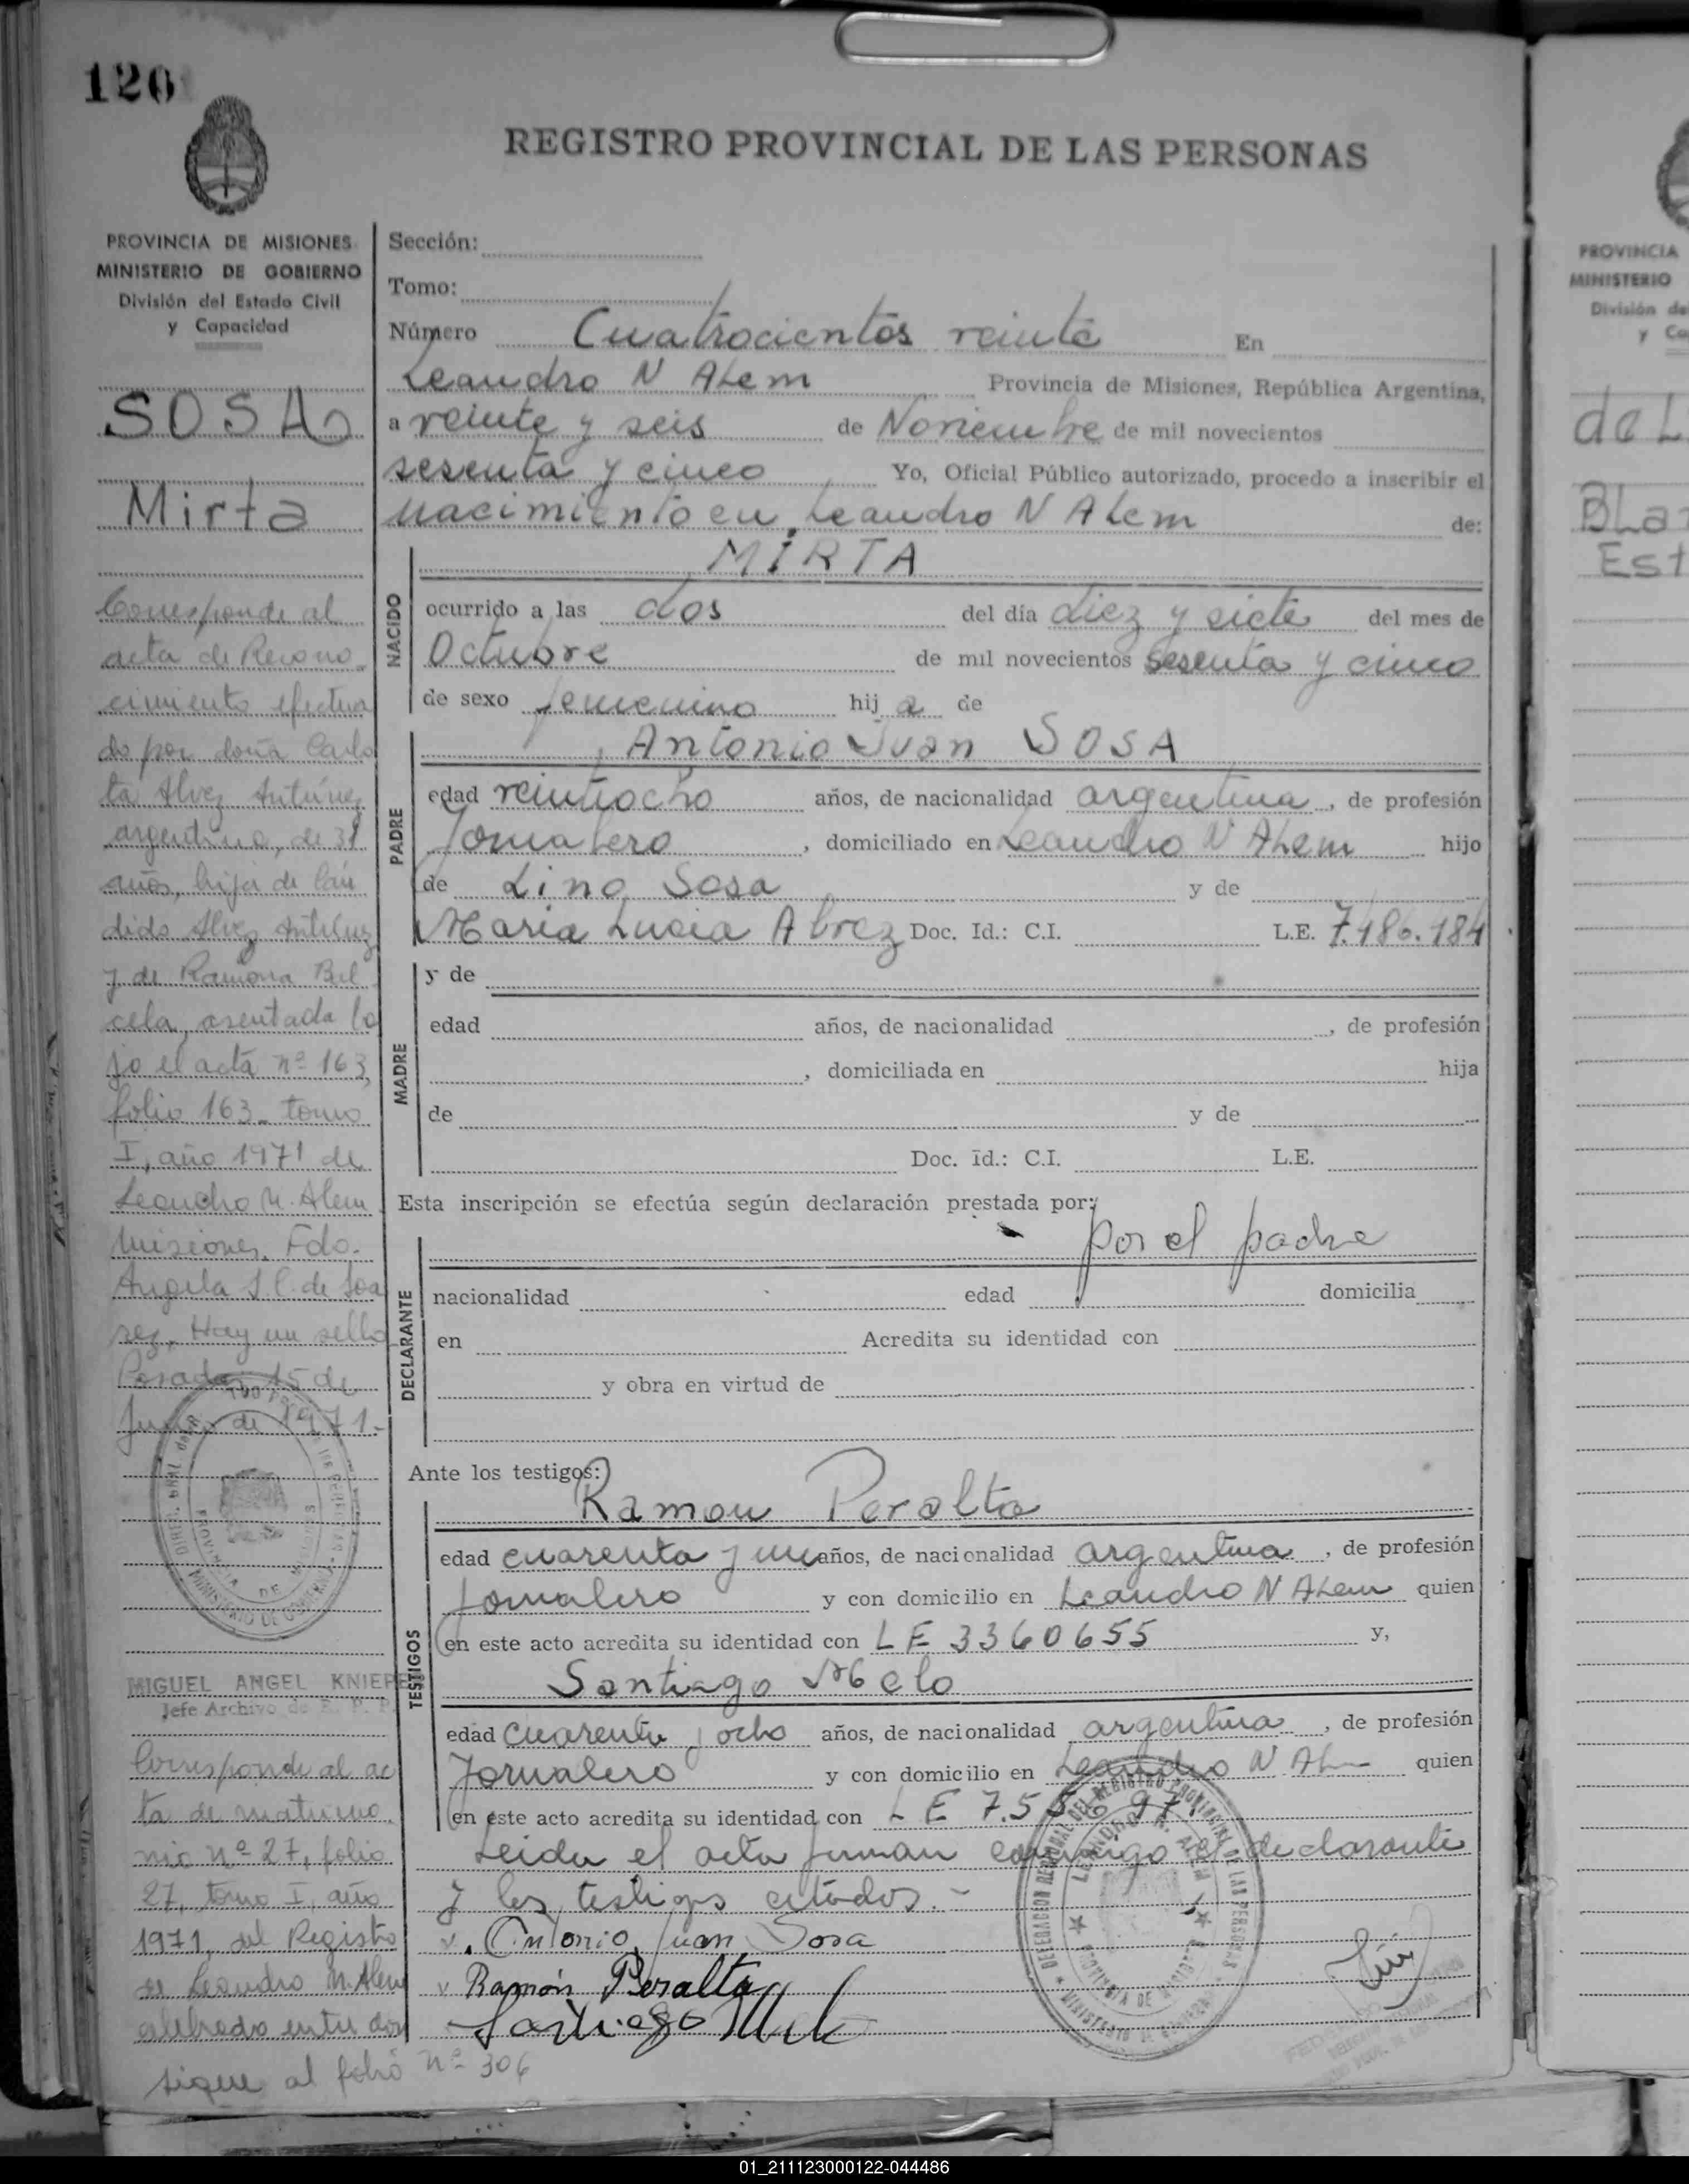 120
REGISTRO PROVINCIAL DE LAS PERSONAS
PROVINCIA DE MISIONES
MINISTERIO DE GOBIERNO
División del Estado Civil
y Capacidad
SOSA
Mirta
Corresponde al
acta de Recono
cimiento efectua
do por doña Carlo
ta Alvez Antúnez
argentina, de 31
años, hija de Cán
dido Alvez Antúnez
y de Ramona Bal
cela, asentada ba
jo el acta nº 163,
folio 163- tomo
I, año 1971 de
Leandro N. Alem
Misiones. Fdo.
Angela S. C. de Soa
rez. Hay un sello
Posadas 15 de
de 1971.-
MIGUEL ANGEL KNIEPE
Jefe Archivo de R. P. P.
Corresponde al ac
ta de matrimo
nio nº 27, folio
27, tomo I, año
1971, del Registro
de Leandro N. Alem
celebrado entre don
sigue al folio nº 306
Sección:
Tomo:
Número Cuatrocientos veinte En
Leandro N Alem Provincia de Misiones, República Argentina,
a veinte y seis de Noviembre de mil novecientos
sesenta y cinco Yo, Oficial Público autorizado, procedo a inscribir el
nacimiento en Leandro N Alem de:
MIRTA
NACIDO
ocurrido a las dos del día diez y siete del mes de
Octubre de mil novecientos sesenta y cinco
de sexo femenino hija de
Antonio Juan SOSA
PADRE
edad veintiocho años, de nacionalidad argentina, de profesión
Jornalero, domiciliado en Leandro N Alem hijo
de Lino Sosa y de
Maria Lucia Alvez Doc. Id.: C.I. L.E. 7.480.184
MADRE
y de
edad años, de nacionalidad , de profesión
, domiciliada en hija
de y de
Doc. Id.: C.I. L.E.
Esta inscripción se efectúa según declaración prestada por:
por el padre
DECLARANTE
nacionalidad edad domicilia
en Acredita su identidad con
y obra en virtud de
Ante los testigos:
Ramon Peralta
TESTIGOS
edad cuarenta y un años, de nacionalidad argentina, de profesión
Jornalero y con domicilio en Leandro N Alem quien
en este acto acredita su identidad con L E 3360655 y,
Santiago Melo
edad cuarenta y ocho años, de nacionalidad argentina, de profesión
Jornalero y con domicilio en Leandro N Alem quien
en este acto acredita su identidad con L E 7.55
Leida el acta firman conmigo el declarante
y los testigos citados.-
Antonio Juan Sosa
Ramón Peralta
Santiago Melo
PROVINCIA
MINISTERIO
División de
y Ca
de L
BLa
Est
01_211123000122-044486